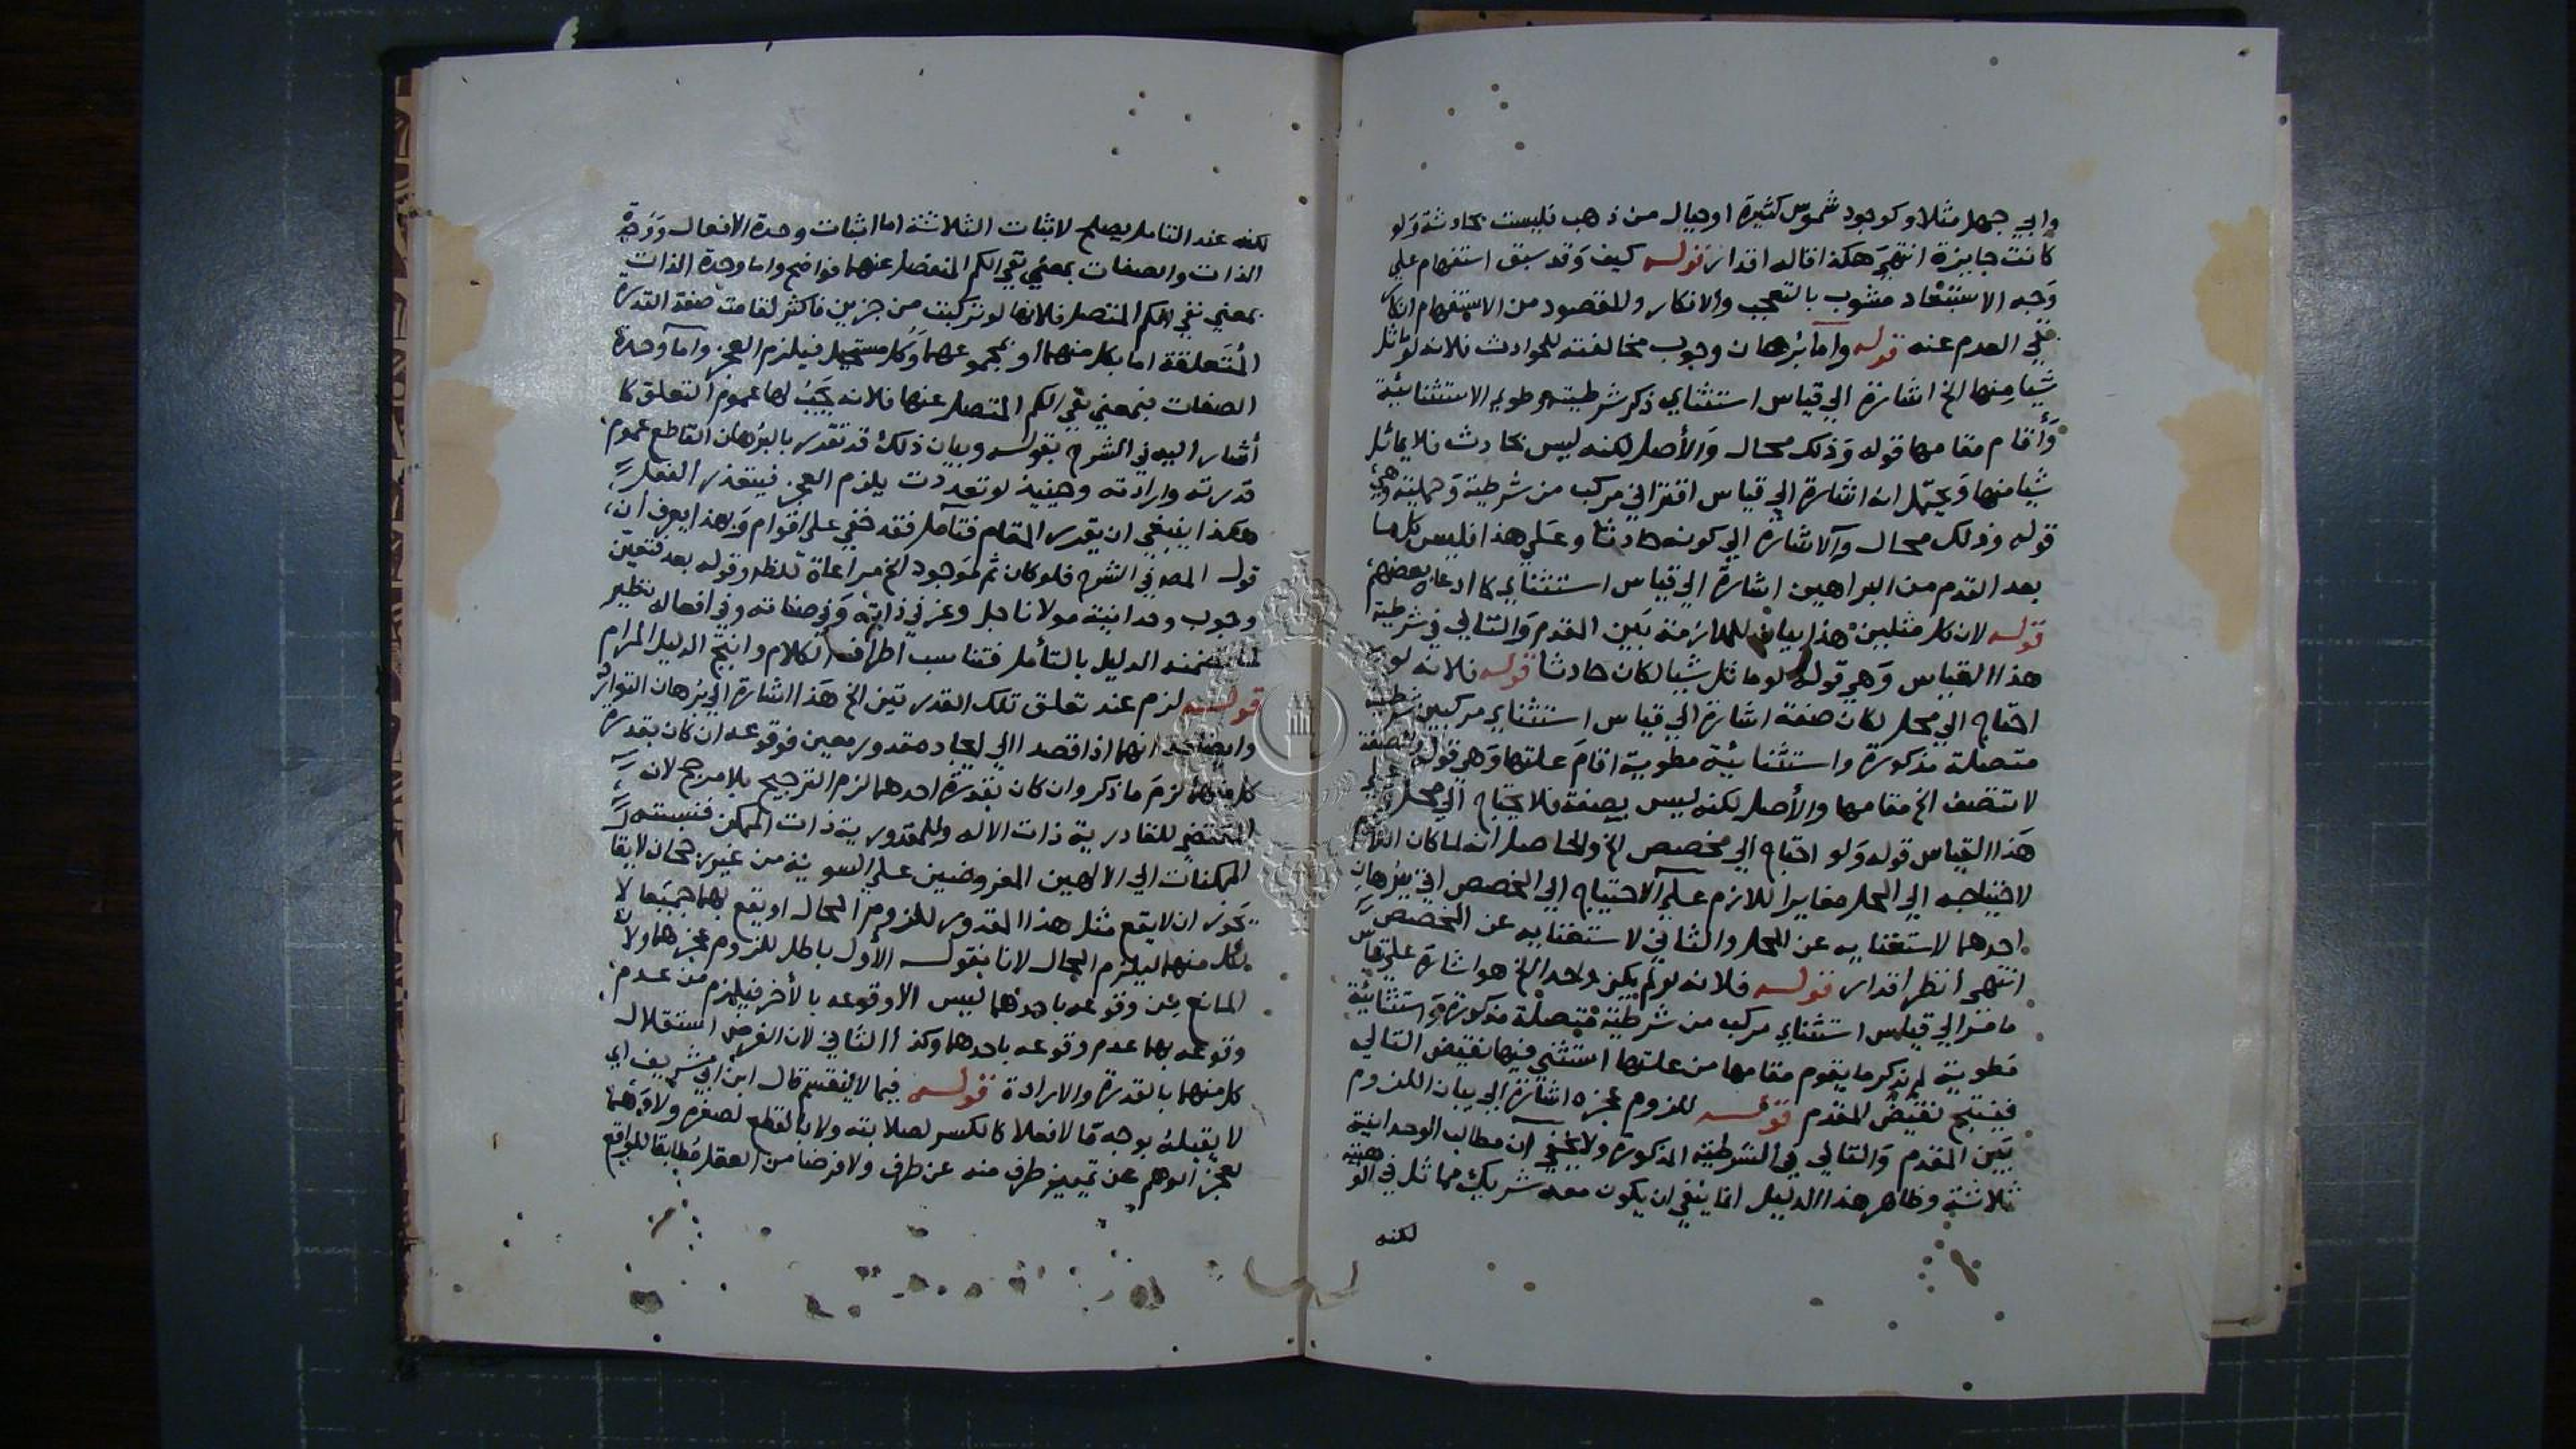 وابي جهل مثلا وكوجود شموس كثيرة او جبال من ذهب فليست بحادثة ولو
كانت جايزة انتهي هكذا قاله اقدار قوله كيف وقد سبق استفهام علي
وجه الاستبعاد مشوب بالتعجب والانكار والمقصود من الاستفهام انكار
نفي العدم عنه قوله واما برهان وجوب مخالفته للحوادث فلانه لو ماثل
شيا منها الخ اشارة الي قياس استثنائي ذكر شرطيته وطوي الاستثنائية
وأقام مقامها قوله وذلك محال والأصل لكنه ليس بحادث فلا يماثل
شيا منها ويحتمل انه اشارة الي قياس اقتراني مركب من شرطية وحملية وهي
قوله وذلك محال والاشارة الي كونه حادثا وعلي هذا فليس كلما
بعد القدم من البراهين اشارة الي قياس استثنائي كما ادعاه بعضهم
قوله لان كل مثلين هذا بيان للملازمة بين المقدم والتالي في شرطية
هذا القياس وهي قوله لو ماثل شيا لكان حادثا قوله فلانه لو
احتاج الي محل لكان صفة اشارة الي قياس استثنائي مركب من شرطية
متصلة مذكورة واستثنائية مطوية اقام علتها وهي قوله والصفة
لا تتصف الخ مقامها والأصل لكنه ليس بصفة فلا يحتاج الي محل
هذا القياس قوله ولو احتاج الي مخصص الخ والحاصل انه لما كان اللازم
لاحتياجه الي المحل مغايرا للازم علي الاحتياج الي المخصص اتي ببرهان
احدهما لاستغنايه عن المحل والثاني لاستغنايه عن المخصص
انتهي أنظر اقدار قوله فلانه لو لم يكن واحدا الخ هو اشارة علي قياس
ما مر الي قياس استثنائي مركب من شرطية متصلة مذكورة واستثنائية
مطوية لم يذكر ما يقوم مقامها من علتها استثني فيها نقيض التالي
فينتج نقيض المقدم قوله للزوم عجزه اشارة الي بيان اللزوم
بين المقدم والتالي في الشرطية المذكورة ولا يخفي ان مطالب الوحدانية
ثلاثة وظاهر هذا الدليل انما ينفي ان يكون معه شريك مماثل في الوهيته
لكنه
لكنه عند التامل يصلح لاثبات الثلاثة اما اثبات وحدة الافعال ووحدة
الذات والصفات بمعني نفي الكم المنفصل عنهما فواضح واما وحدة الذات
بمعني نفي الكم المتصل فلانها لو تركبت من جزين فاكثر لقامت صفة القدرة
المتعلقة اما بكل منهما أو بمجموعهما وكل مستحيل فيلزم العجز واما وحدة
الصفات فبمعني نفي الكم المتصل عنها فلانه يجب لها عموم التعلق كما
أشار اليه في الشرح بقوله وبيان ذلك قد تقرر بالبرهان القاطع عموم
قدرته وارادته وحينيذ لو تعددت يلزم العجز فيتعذر الفعل
هكذا ينبغي ان يقرر المقام فتأمل فقد خفي علي اقوام وبهذا يعرف ان
قول المصه في الشرح فلو كان ثم موجود الخ مراعاة للظهر وقوله بعد فتعين
وجوب وحدانية مولانا جل وعز في ذاته وفي صفاته وفي افعاله نظير
لما تضمنه الدليل بالتأمل فتناسب اطراف الكلام وانتج الدليل المرام
قوله لزم عند تعلق تلك القدرتين الخ هذا اشارة الي برهان التوارد
وايضاحه انهما اذا قصدا الي ايجاد مقدور معين فوقوعه ان كان بقدرة
كل منهما لزم ما ذكر وان كان بقدرة احدهما لزم الترجيح بلا مرجح لان
المقتضي للقادرية ذات الاله وللمقدورية ذات الممكن فنسبته
الممكنات الي الالهين المفروضين علي السوية من غير رجحان لا يقال
يجوز ان لا يقع مثل هذا المقدور للزوم المحال او يقع بهما جميعا لا
بكل منهما ليلزم المحال لانا نقول الأول باطل للزوم عجزهما ولان
المانع عن وقوعه باحدهما ليس الا وقوعه بالأخر فيلزم من عدم
وقوعه بهما عدم وقوعه باحدهما وكذا الثاني لان الفرض استقلال
كل منهما بالقدرة والارادة قوله فيما لا ينقسم قال ابن ابي شريف اي
لا يقبله بوجه ما لا فعلا كالكسر لصلابته ولا بالقطع لصغره ولا وهما
لعجز الوهم عن تمييز طرف منه عن طرف ولا فرضا من العقل مطابقا للواقع